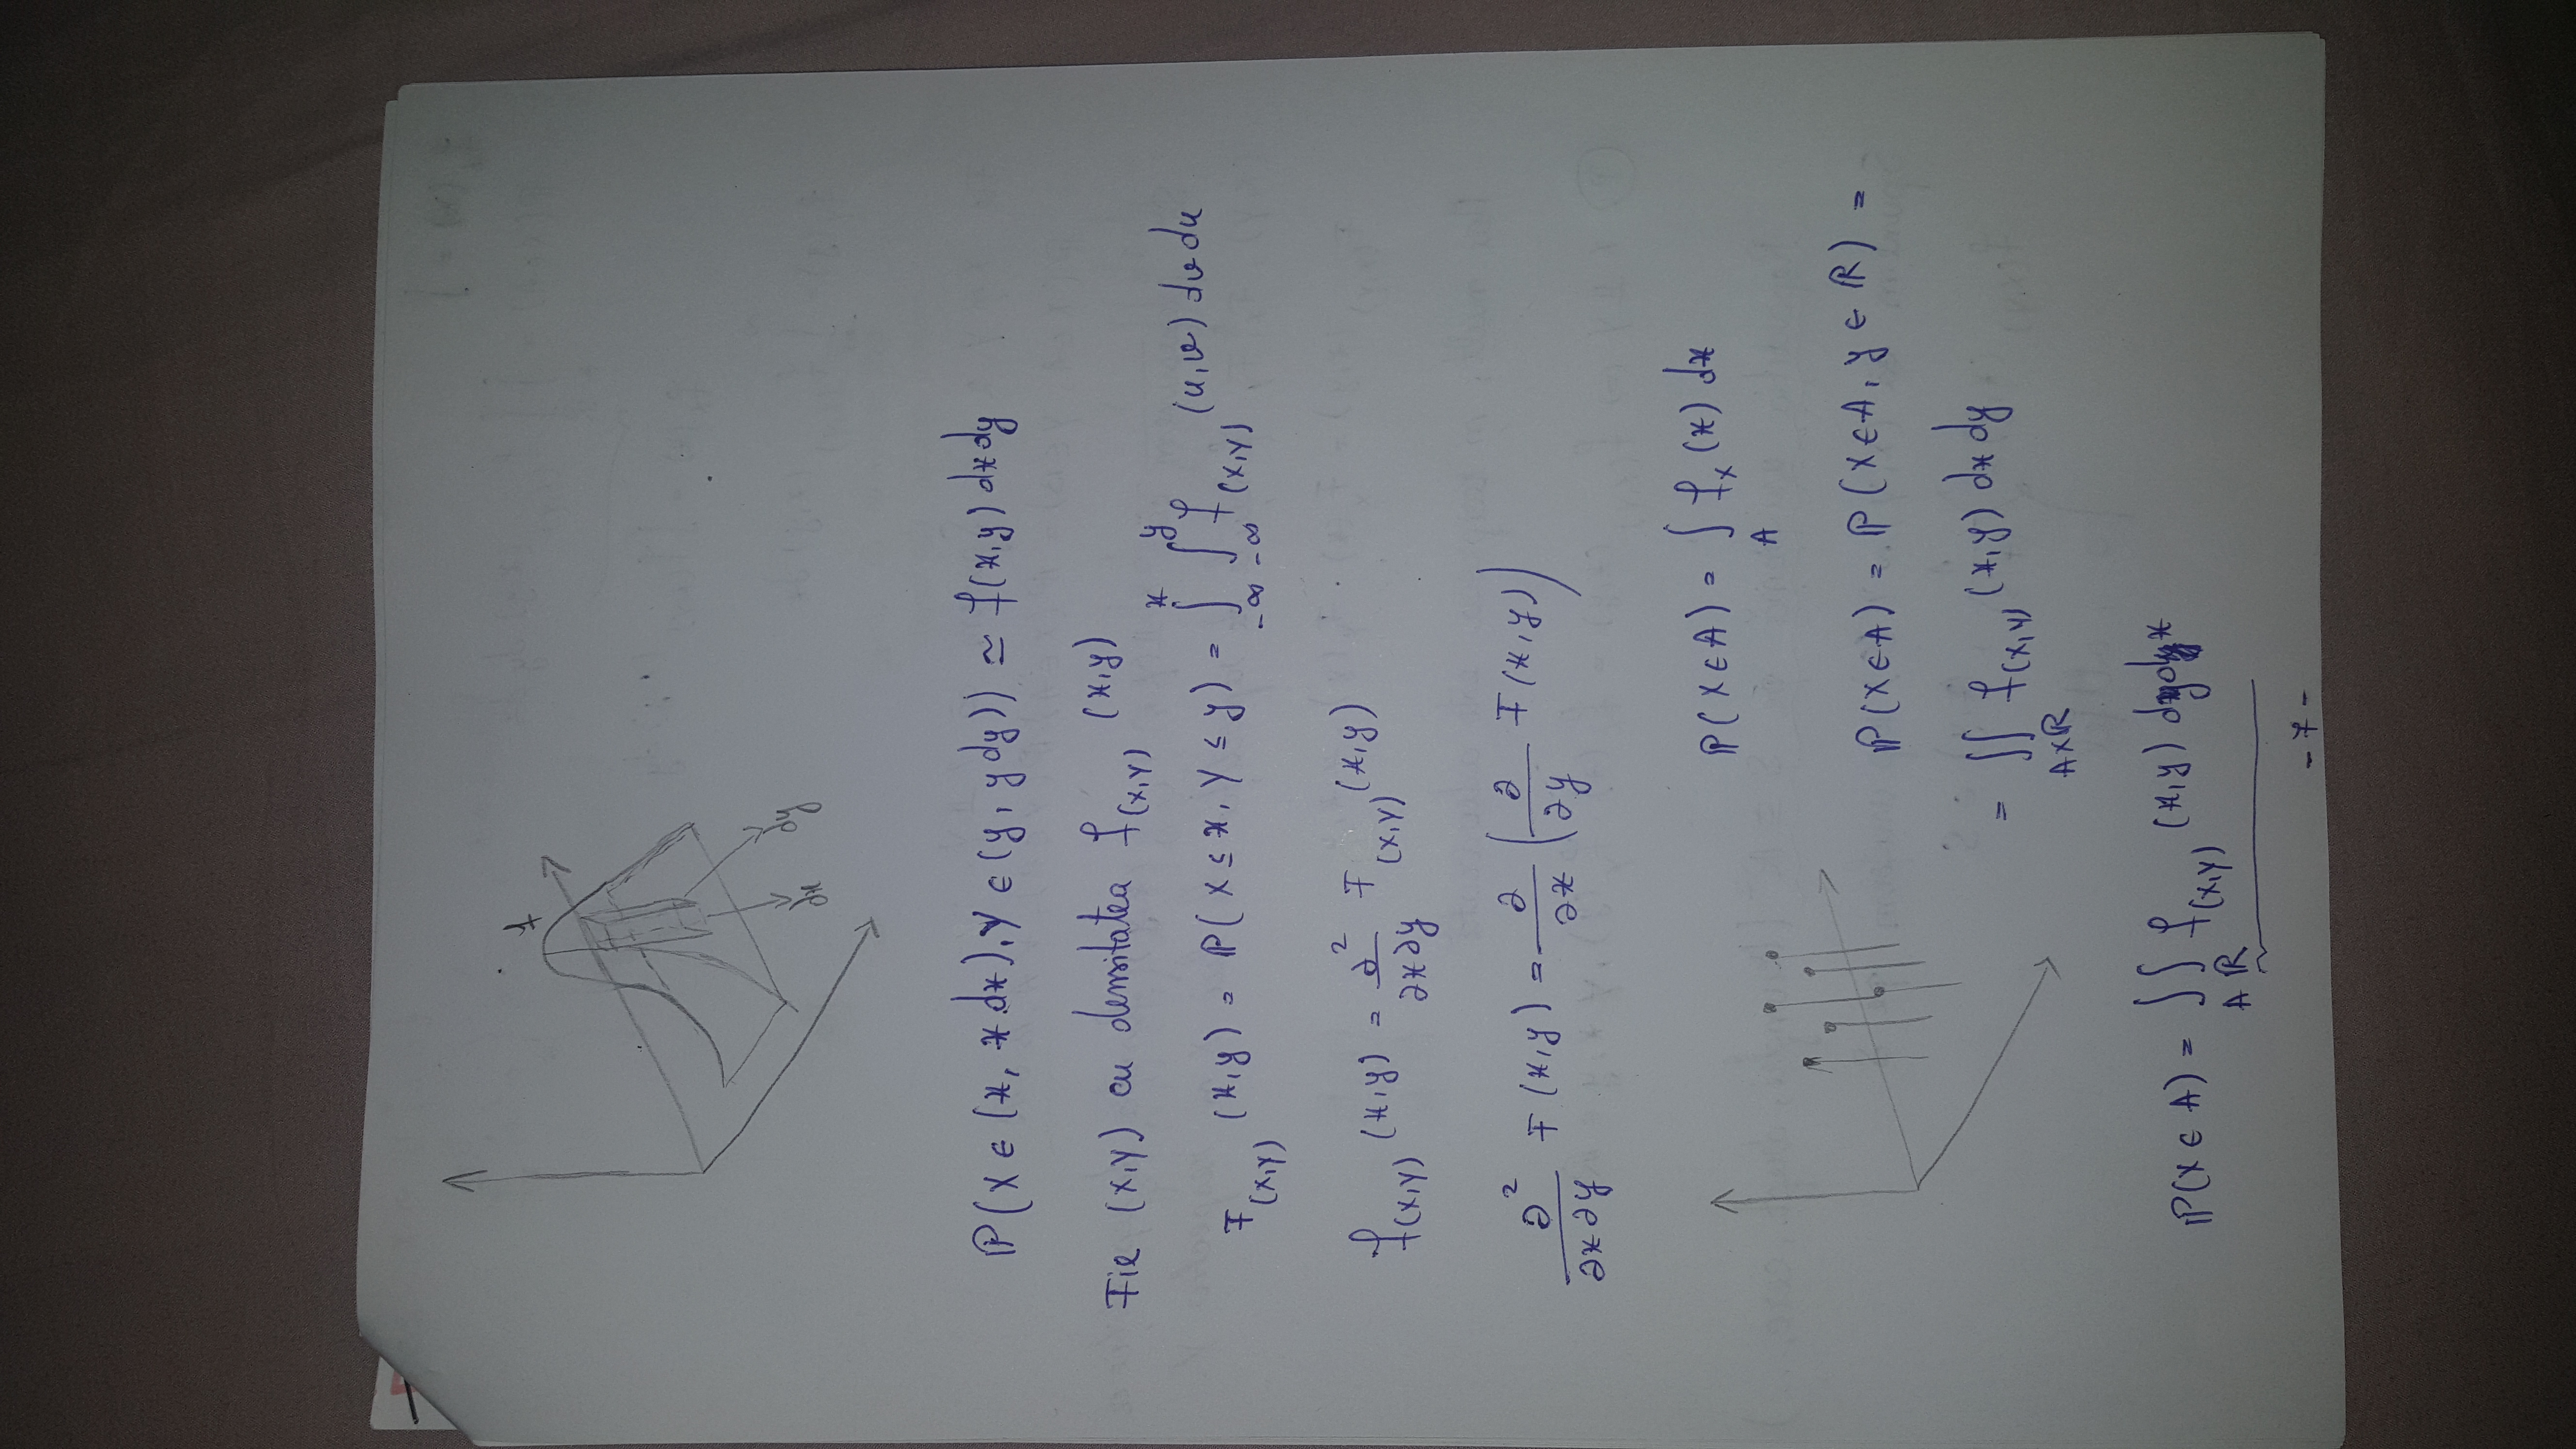 f
dx
dy
P(X ∈ (x, x dx), Y ∈ (y, y dy)) ≃ f(x,y) dx dy
Fie (X,Y) cu densitatea f_(X,Y) (x,y)
F_(X,Y) (x,y) = P(X ≤ x, Y ≤ y) = ∫_{-∞}^{x} ∫_{-∞}^{y} f_(X,Y) (u,v) dv du
f_(X,Y) (x,y) = ∂²/∂x∂y F_(X,Y) (x,y)
∂²/∂x∂y F(x,y) = ∂/∂x (∂/∂y F(x,y))
P(X ∈ A) = ∫_A f_X (x) dx
P(X ∈ A) = P(X ∈ A, y ∈ R) =
= ∬_{A×R} f_(X,Y) (x,y) dx dy
P(X ∈ A) = ∫_A ∫_R f_(X,Y) (x,y) dy dx
- 7 -